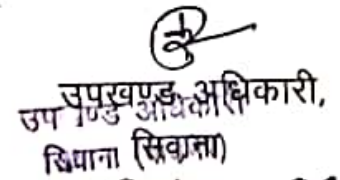 उपखण्ड अधिकारी,
उप ण्ड अधिकारी
सिवाना (सिवाना)